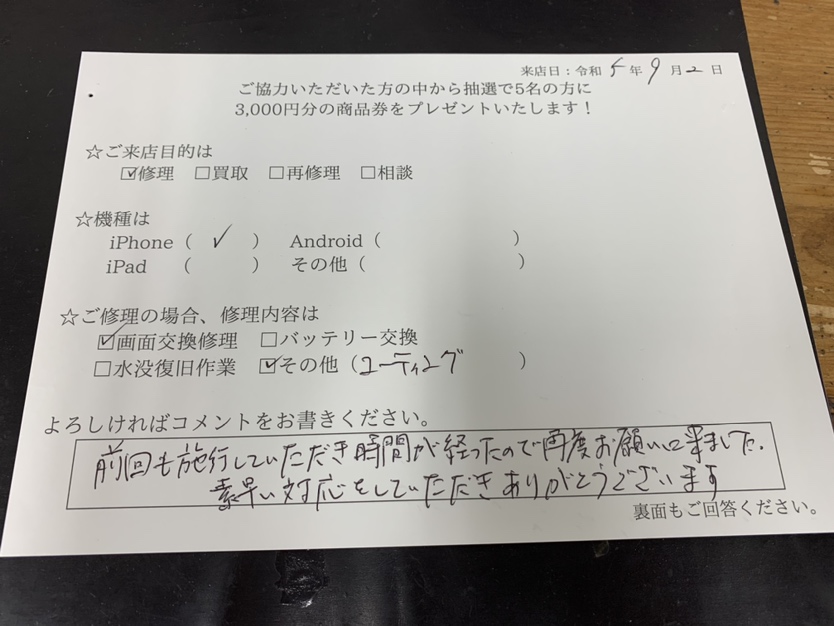 来店日：令和 5 年 9 月 2 日
ご協力いただいた方の中から抽選で5名の方に
3,000円分の商品券をプレゼントいたします！
☆ご来店目的は
☑修理 □買取 □再修理 □相談
☆機種は
iPhone（ ✓ ） Android（ ）
iPad （ ） その他（ ）
☆ご修理の場合、修理内容は
☑画面交換修理 □バッテリー交換
□水没復旧作業 ☑その他（コーティング ）
よろしければコメントをお書きください。
前回も施行していただき時間が経ったので再度お願いに来ました.
素早い対応をしていただきありがとうございます
裏面もご回答ください。